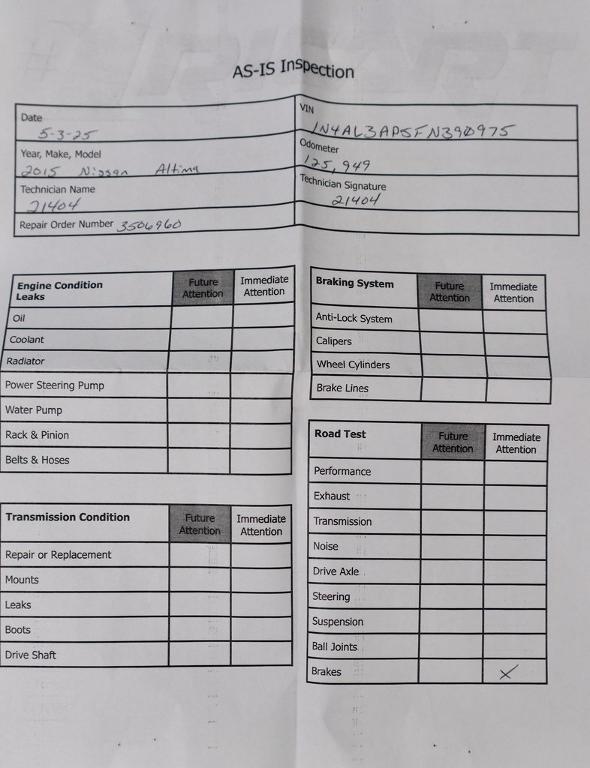 AS-IS Inspection
Date
5-3-25
VIN
1N4AL3AP5FN390975
Year, Make, Model
2015 Nissan Altima
Odometer
125,949
Technician Name
21404
Technician Signature
21404
Repair Order Number 3506960
Engine Condition
Leaks
Future
Attention
Immediate
Attention
Oil
Coolant
Radiator
Power Steering Pump
Water Pump
Rack & Pinion
Belts & Hoses
Transmission Condition
Future
Attention
Immediate
Attention
Repair or Replacement
Mounts
Leaks
Boots
Drive Shaft
Braking System
Future
Attention
Immediate
Attention
Anti-Lock System
Calipers
Wheel Cylinders
Brake Lines
Road Test
Future
Attention
Immediate
Attention
Performance
Exhaust
Transmission
Noise
Drive Axle
Steering
Suspension
Ball Joints
Brakes X